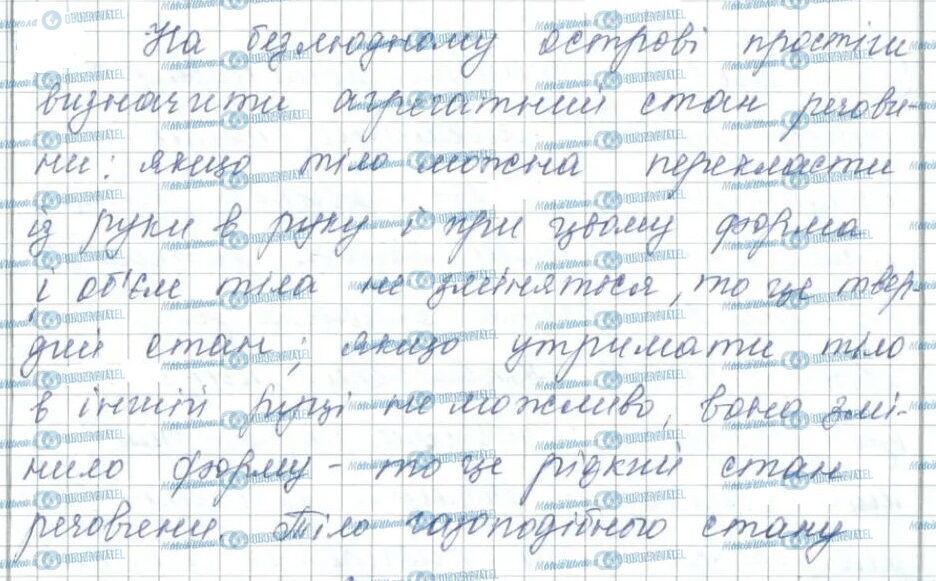 На безлюдному острові простіш
визначити агрегатний стан речови-
ни: якщо тіло можна перекласти
із руки в руку і при цьому форма
і об'єм тіла не зміняться, то це твер-
дий стан; якщо утримати тіло
в іншій руці не можливо, вона змі-
нило форму - то це рідкий стан
речовини. Тіло газоподібного стану